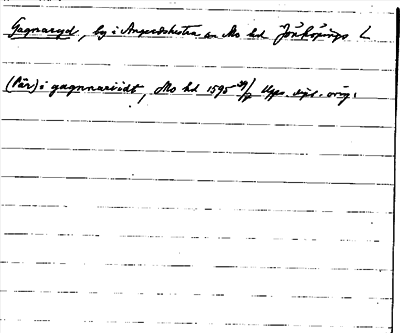 Gagnaryd, by i Angerdshestra sn Mo hd Jönköpings L
(Pär) i gagnnariidt, Mo hd 1595 Upps. dipl. orig.